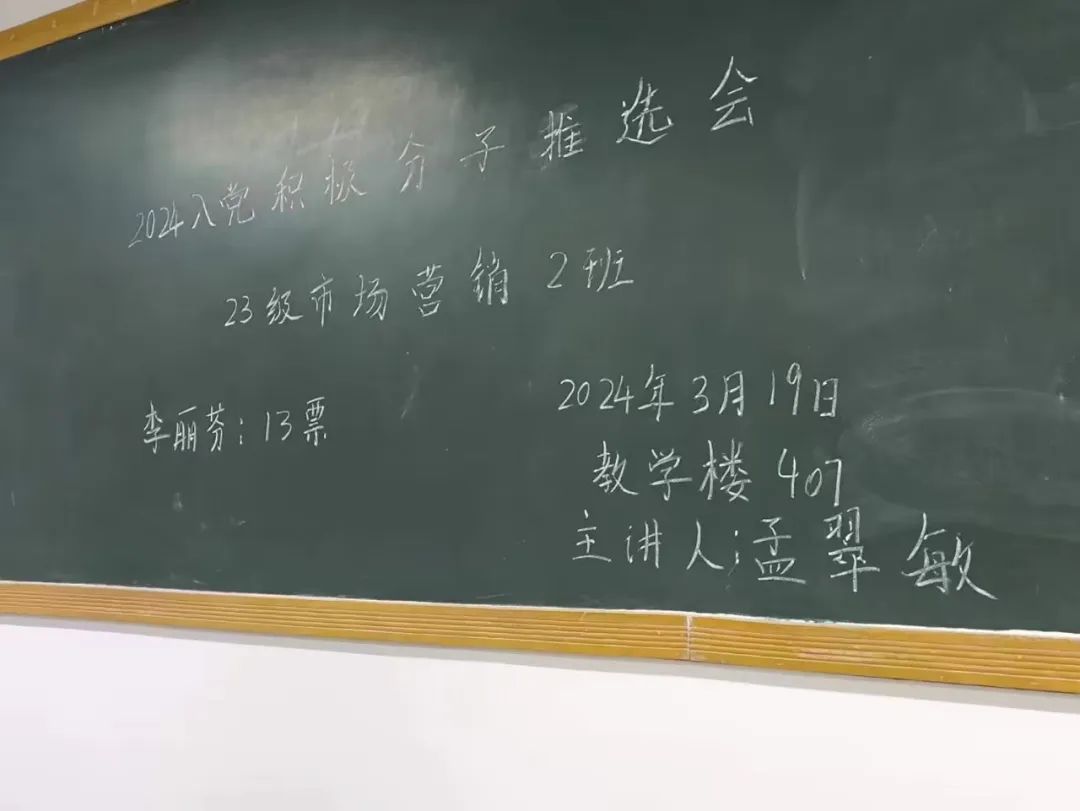 2024入党积极分子推选会
23级市场营销2班
李丽芬：13票
2024年3月19日
教学楼407
主讲人：孟翠敏